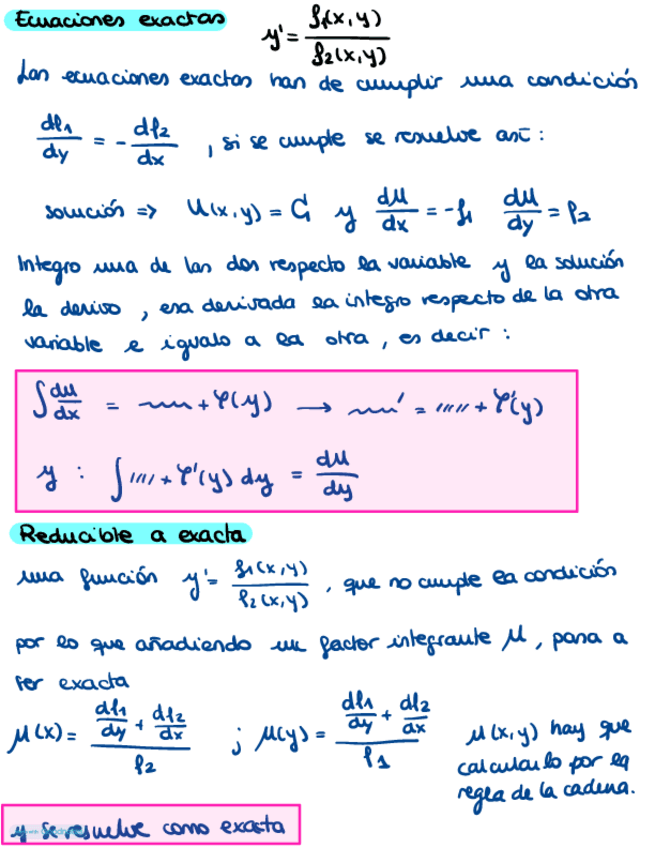 Ecuaciones exactas y' = f₁(x,y) / f₂(x,y)
Las ecuaciones exactas han de cumplir una condición
df₁/dy = - df₂/dx , si se cumple se resuelve así:
solución => U(x,y) = C₁ y dU/dx = -f₁ dU/dy = f₂
Integro una de las dos respecto la variable y la solución
la derivo, esa derivada la integro respecto de la otra
variable e igualo a la otra, es decir:
∫ dU/dx = ~~~ + φ(y) → ~~~' = //// + φ'(y)
y : ∫ //// + φ'(y) dy = dU/dy
Reducible a exacta
una función y' = f₁(x,y) / f₂(x,y) , que no cumple la condición
por lo que añadiendo un factor integrante μ, pasa a
ser exacta
μ(x) = (df₁/dy + df₂/dx) / f₂ ; μ(y) = (df₁/dy + df₂/dx) / f₁ μ(x,y) hay que
calcularlo por la
regla de la cadena.
y se resuelve como exacta